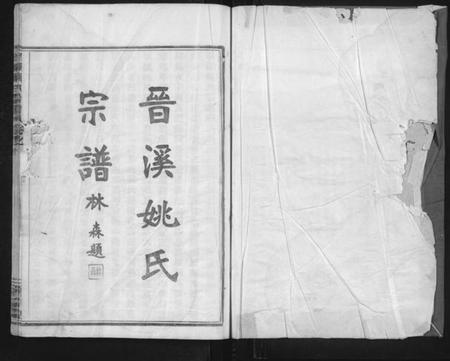 晉溪姚氏
宗譜
林森題